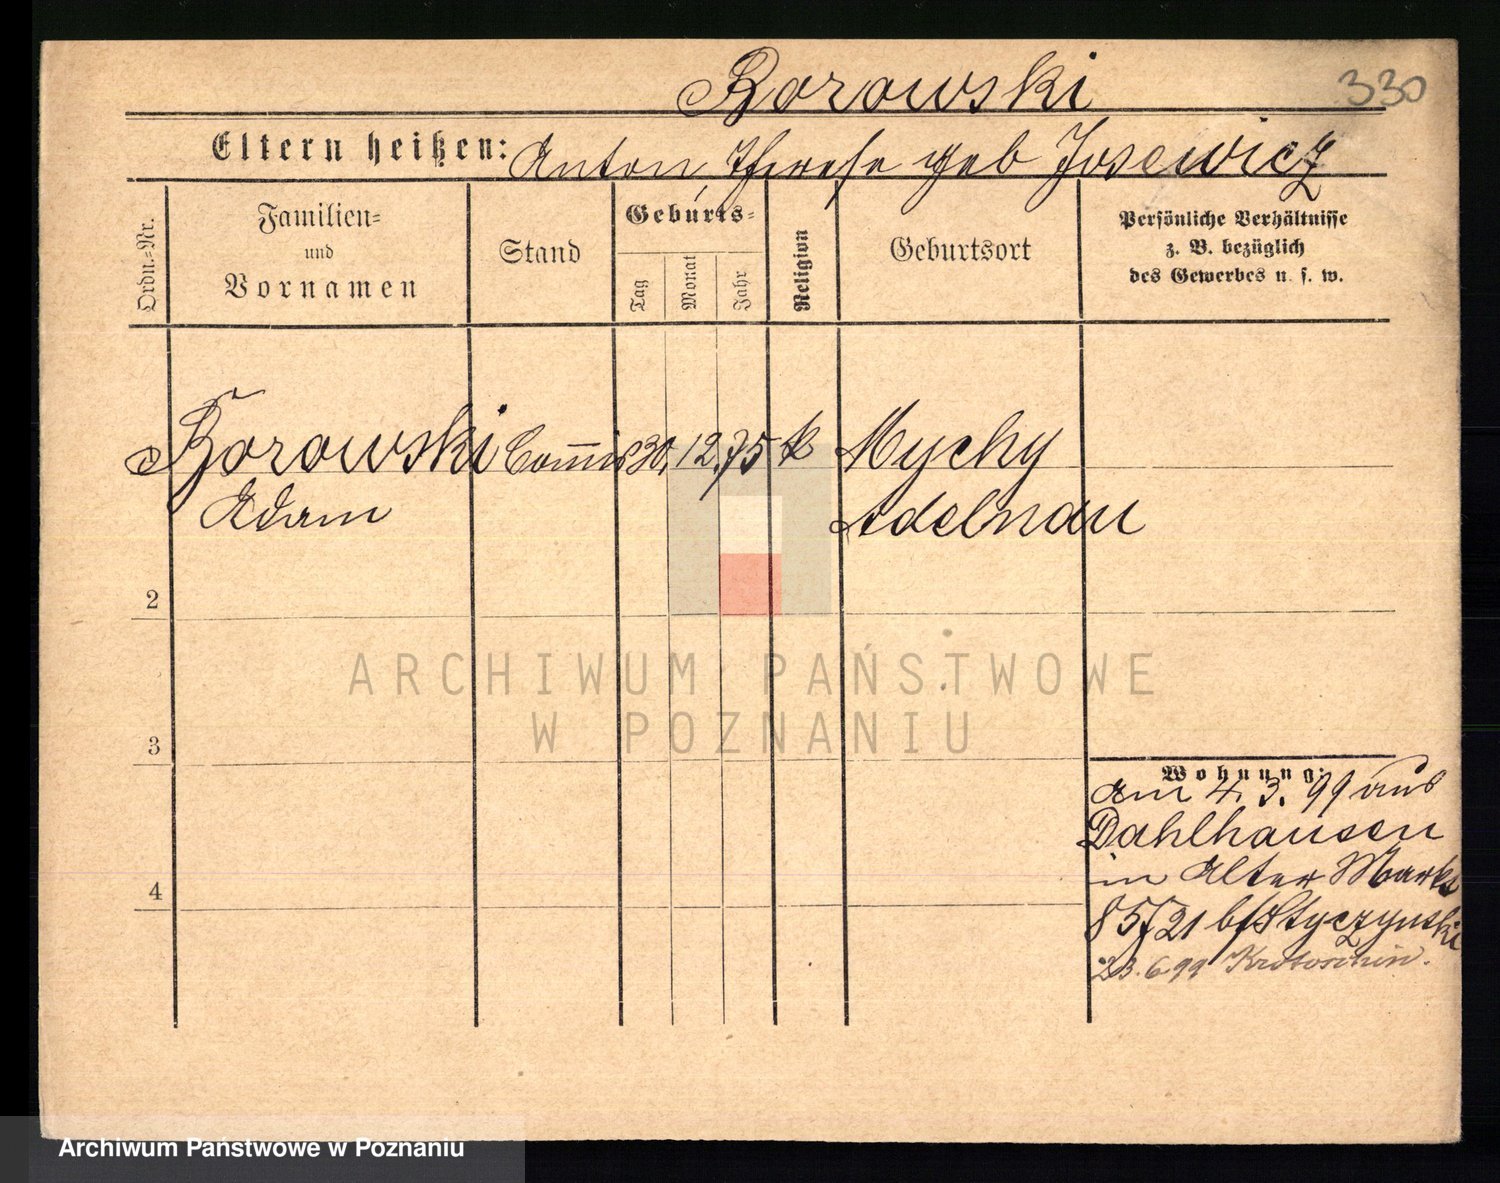 Borowski
330
Eltern heißen: Anton, Therese geb Josewicz
Ordn.=Nr.
Familien=
und
Vornamen
Stand
Geburts=
Tag
Monat
Jahr
Religion
Geburtsort
Persönliche Verhältnisse
z. B. bezüglich
des Gewerbes u. s. w.
Borowski Commis 30. 12. 75 k Mychy
Adam Adelnau
2
3
4
ARCHIWUM PAŃSTWOWE
W POZNANIU
Wohnung:
am 4. 3. 99 aus
Dahlhausen
in Alter Markt
85/21 b/ Styczynski
23.6 99 Krotoschin.
Archiwum Państwowe w Poznaniu